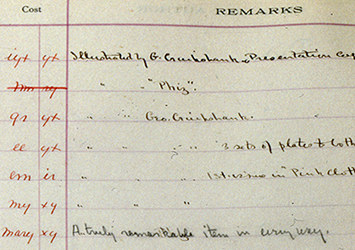 Cost REMARKS
iyx yx Illustrated by G. Cruikshank, Presentation Cop
" " "Phiz".
gs yx " " Geo. Cruikshank.
ee yx " " " 3 sets of plates & Cloth
em is " " " 1st issue in Pink Cloth
my xy " " "
marey xy A truly remarkable item in every way.